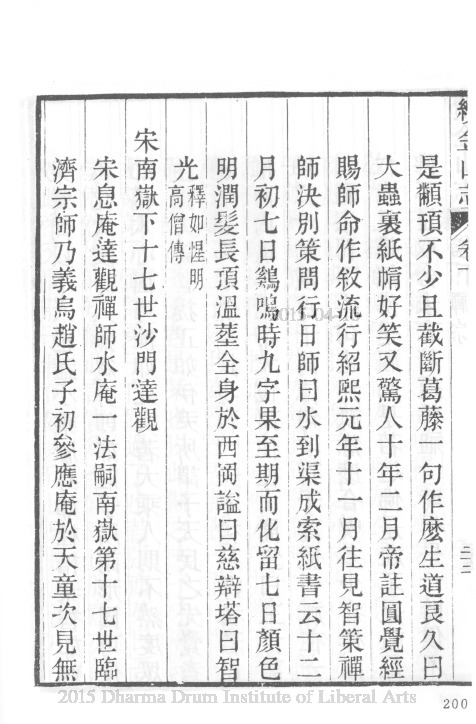 是顢頇不少且截斷葛藤一句作麽生道良久曰
大蟲裹紙帽好笑又驚人十年二月帝註圓覺經
賜師命作敘流行紹熙元年十一月往見智策禪
師決別策問行日師曰水到渠成索紙書云十二
月初七日鷄鳴時九字果至期而化留七日顏色
明潤髮長頂溫塟全身於西岡謚曰慈辯塔曰智
光釋如惺明高僧傳
宋南嶽下十七世沙門達觀
宋息庵達觀禪師水庵一法嗣南嶽第十七世臨
濟宗師乃義烏趙氏子初參應庵於天童次見無
200
2015 Dharma Drum Institute of Liberal Arts